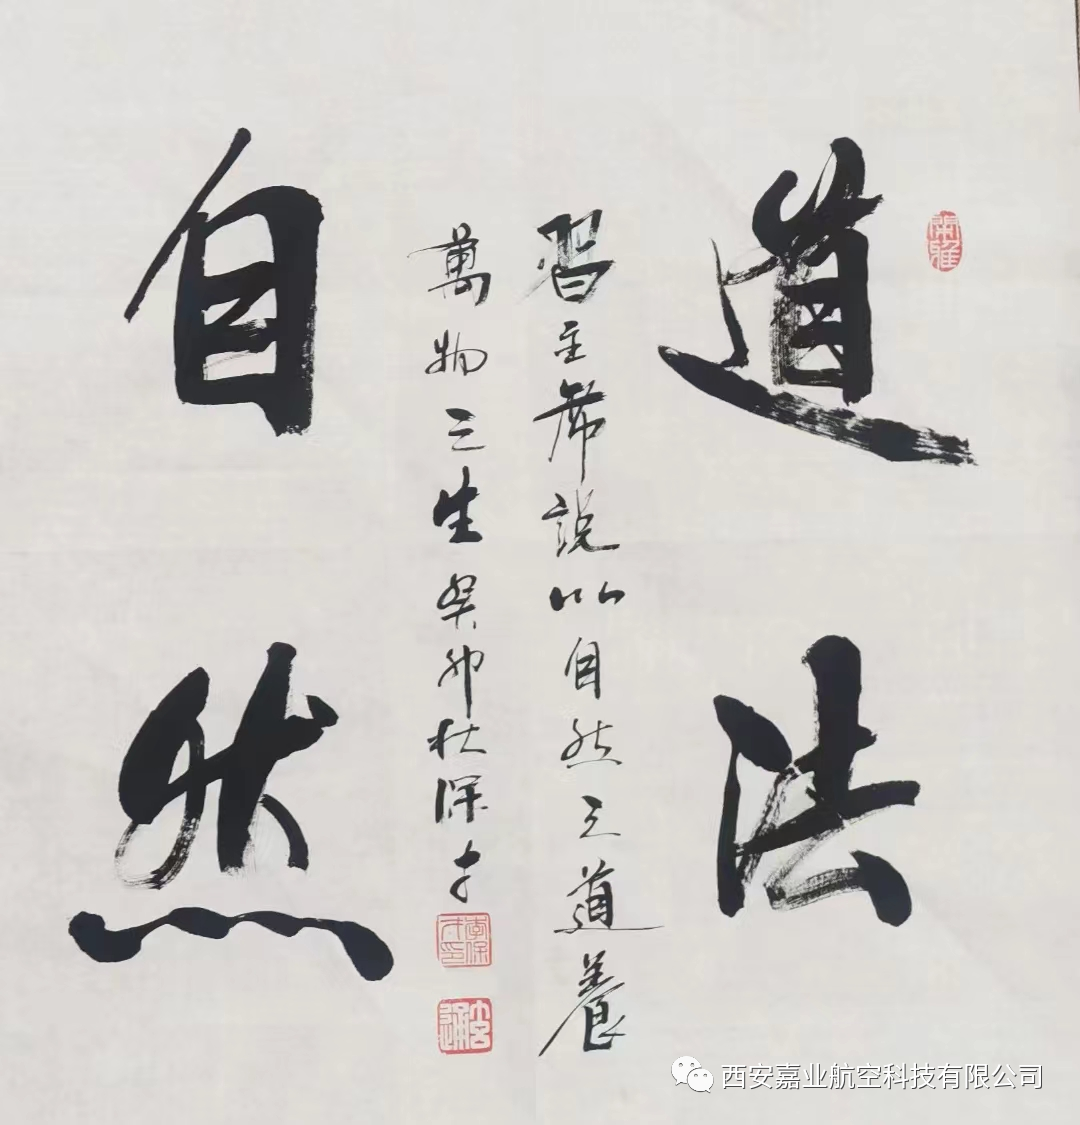 道法
自然
習主席說以自然之道養
萬物之生癸卯秋保才
西安嘉业航空科技有限公司